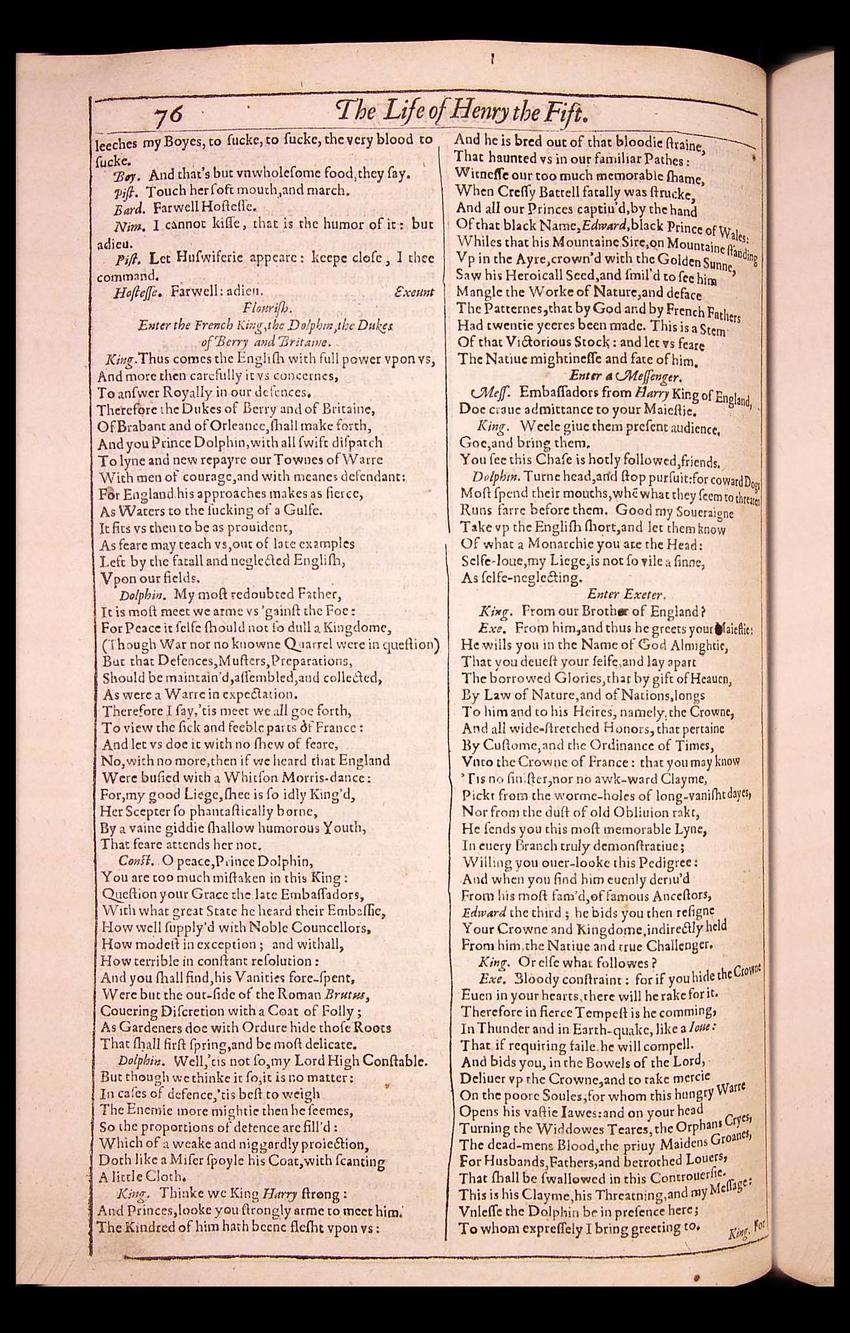 76
The Life of Henry the Fift.
leeches my Boyes, to ſucke, to ſucke, the very blood to
ſucke.
Boy. And that's but vnwholeſome food, they ſay.
Piſt. Touch her ſoft mouth, and march.
Bard. Farwell Hoſteſſe.
Nim. I cannot kiſſe, that is the humor of it: but
adieu.
Piſt. Let Huſwiferie appeare: keepe cloſe, I thee
command.
Hoſteſſe. Farwell: adieu. Exeunt
Flouriſh.
Enter the French King, the Dolphin, the Dukes
of Berry and Britaine.
King. Thus comes the Engliſh with full power vpon vs,
And more then carefully it vs concernes,
To anſwer Royally in our defences.
Therefore the Dukes of Berry and of Britaine,
Of Brabant and of Orleance, ſhall make forth,
And you Prince Dolphin, with all ſwift diſpatch
To lyne and new repayre our Townes of Warre
With men of courage, and with meanes defendant:
For England his approaches makes as fierce,
As Waters to the ſucking of a Gulfe.
It fits vs then to be as prouident,
As feare may teach vs, out of late examples
Left by the fatall and neglected Engliſh,
Vpon our fields.
Dolphin. My moſt redoubted Father,
It is moſt meet we arme vs 'gainſt the Foe:
For Peace it ſelfe ſhould not ſo dull a Kingdome,
(Though War nor no knowne Quarrel were in queſtion)
But that Defences, Muſters, Preparations,
Should be maintain'd, aſſembled, and collected,
As were a Warre in expectation.
Therefore I ſay, 'tis meet we all goe forth,
To view the ſick and feeble parts of France:
And let vs doe it with no ſhew of feare,
No, with no more, then if we heard that England
Were buſied with a Whitſon Morris-dance:
For, my good Liege, ſhee is ſo idly King'd,
Her Scepter ſo phantaſtically borne,
By a vaine giddie ſhallow humorous Youth,
That feare attends her not.
Conſt. O peace, Prince Dolphin,
You are too much miſtaken in this King:
Queſtion your Grace the late Embaſſadors,
With what great State he heard their Embaſſie,
How well ſupply'd with Noble Councellors,
How modeſt in exception; and withall,
How terrible in conſtant reſolution:
And you ſhall find, his Vanities fore-ſpent,
Were but the out-ſide of the Roman Brutus,
Couering Diſcretion with a Coat of Folly;
As Gardeners doe with Ordure hide thoſe Roots
That ſhall firſt ſpring, and be moſt delicate.
Dolphin. Well, 'tis not ſo, my Lord High Conſtable.
But though we thinke it ſo, it is no matter:
In caſes of defence, 'tis beſt to weigh
The Enemie more mightie then he ſeemes,
So the proportions of defence are fill'd:
Which of a weake and niggardly proiection,
Doth like a Miſer ſpoyle his Coat, with ſcanting
A little Cloth.
King. Thinke we King Harry ſtrong:
And Princes, looke you ſtrongly arme to meet him.
The Kindred of him hath beene fleſht vpon vs:
And he is bred out of that bloodie ſtraine,
That haunted vs in our familiar Pathes:
Witneſſe our too much memorable ſhame,
When Creſſy Battell fatally was ſtrucke,
And all our Princes captiu'd, by the hand
Of that black Name, Edward, black Prince of Wales:
Whiles that his Mountaine Sire, on Mountaine ſtanding
Vp in the Ayre, crown'd with the Golden Sunne,
Saw his Heroicall Seed, and ſmil'd to ſee him
Mangle the Worke of Nature, and deface
The Patternes, that by God and by French Fathers
Had twentie yeeres been made. This is a Stem
Of that Victorious Stock: and let vs feare
The Natiue mightineſſe and fate of him.
Enter a Meſſenger.
Meſſ. Embaſſadors from Harry King of England,
Doe craue admittance to your Maieſtie.
King. Weele giue them preſent audience,
Goe, and bring them.
You ſee this Chaſe is hotly followed, friends.
Dolphin. Turne head, and ſtop purſuit: for coward Dogs
Moſt ſpend their mouths, whē what they ſeem to threaten
Runs farre before them. Good my Soueraigne
Take vp the Engliſh ſhort, and let them know
Of what a Monarchie you are the Head:
Selfe-loue, my Liege, is not ſo vile a ſinne,
As ſelfe-neglecting.
Enter Exeter.
King. From our Brother of England?
Exe. From him, and thus he greets your Maieſtie:
He wills you in the Name of God Almightie,
That you deueſt your ſelfe, and lay apart
The borrowed Glories, that by gift of Heauen,
By Law of Nature, and of Nations, longs
To him and to his Heires, namely, the Crowne,
And all wide-ſtretched Honors, that pertaine
By Cuſtome, and the Ordinance of Times,
Vnto the Crowne of France: that you may know
'Tis no ſiniſter, nor no awk-ward Clayme,
Pickt from the worme-holes of long-vaniſht dayes,
Nor from the duſt of old Obliuion rakt,
He ſends you this moſt memorable Lyne,
In euery Branch truly demonſtratiue;
Willing you ouer-looke this Pedigree:
And when you find him euenly deriu'd
From his moſt fam'd, of famous Anceſtors,
Edward the third; he bids you then reſigne
Your Crowne and Kingdome, indirectly held
From him, the Natiue and true Challenger.
King. Or elſe what followes?
Exe. Bloody conſtraint: for if you hide the Crowne
Euen in your hearts, there will he rake for it.
Therefore in fierce Tempeſt is he comming,
In Thunder and in Earth-quake, like a Ioue:
That if requiring faile, he will compell.
And bids you, in the Bowels of the Lord,
Deliuer vp the Crowne, and to take mercie
On the poore Soules, for whom this hungry Warre
Opens his vaſtie Iawes: and on your head
Turning the Widdowes Teares, the Orphans Cryes,
The dead-mens Blood, the priuy Maidens Groanes,
For Husbands, Fathers, and betrothed Louers,
That ſhall be ſwallowed in this Controuerſie.
This is his Clayme, his Threatning, and my Meſſage:
Vnleſſe the Dolphin be in preſence here;
To whom expreſſely I bring greeting to.
King. For